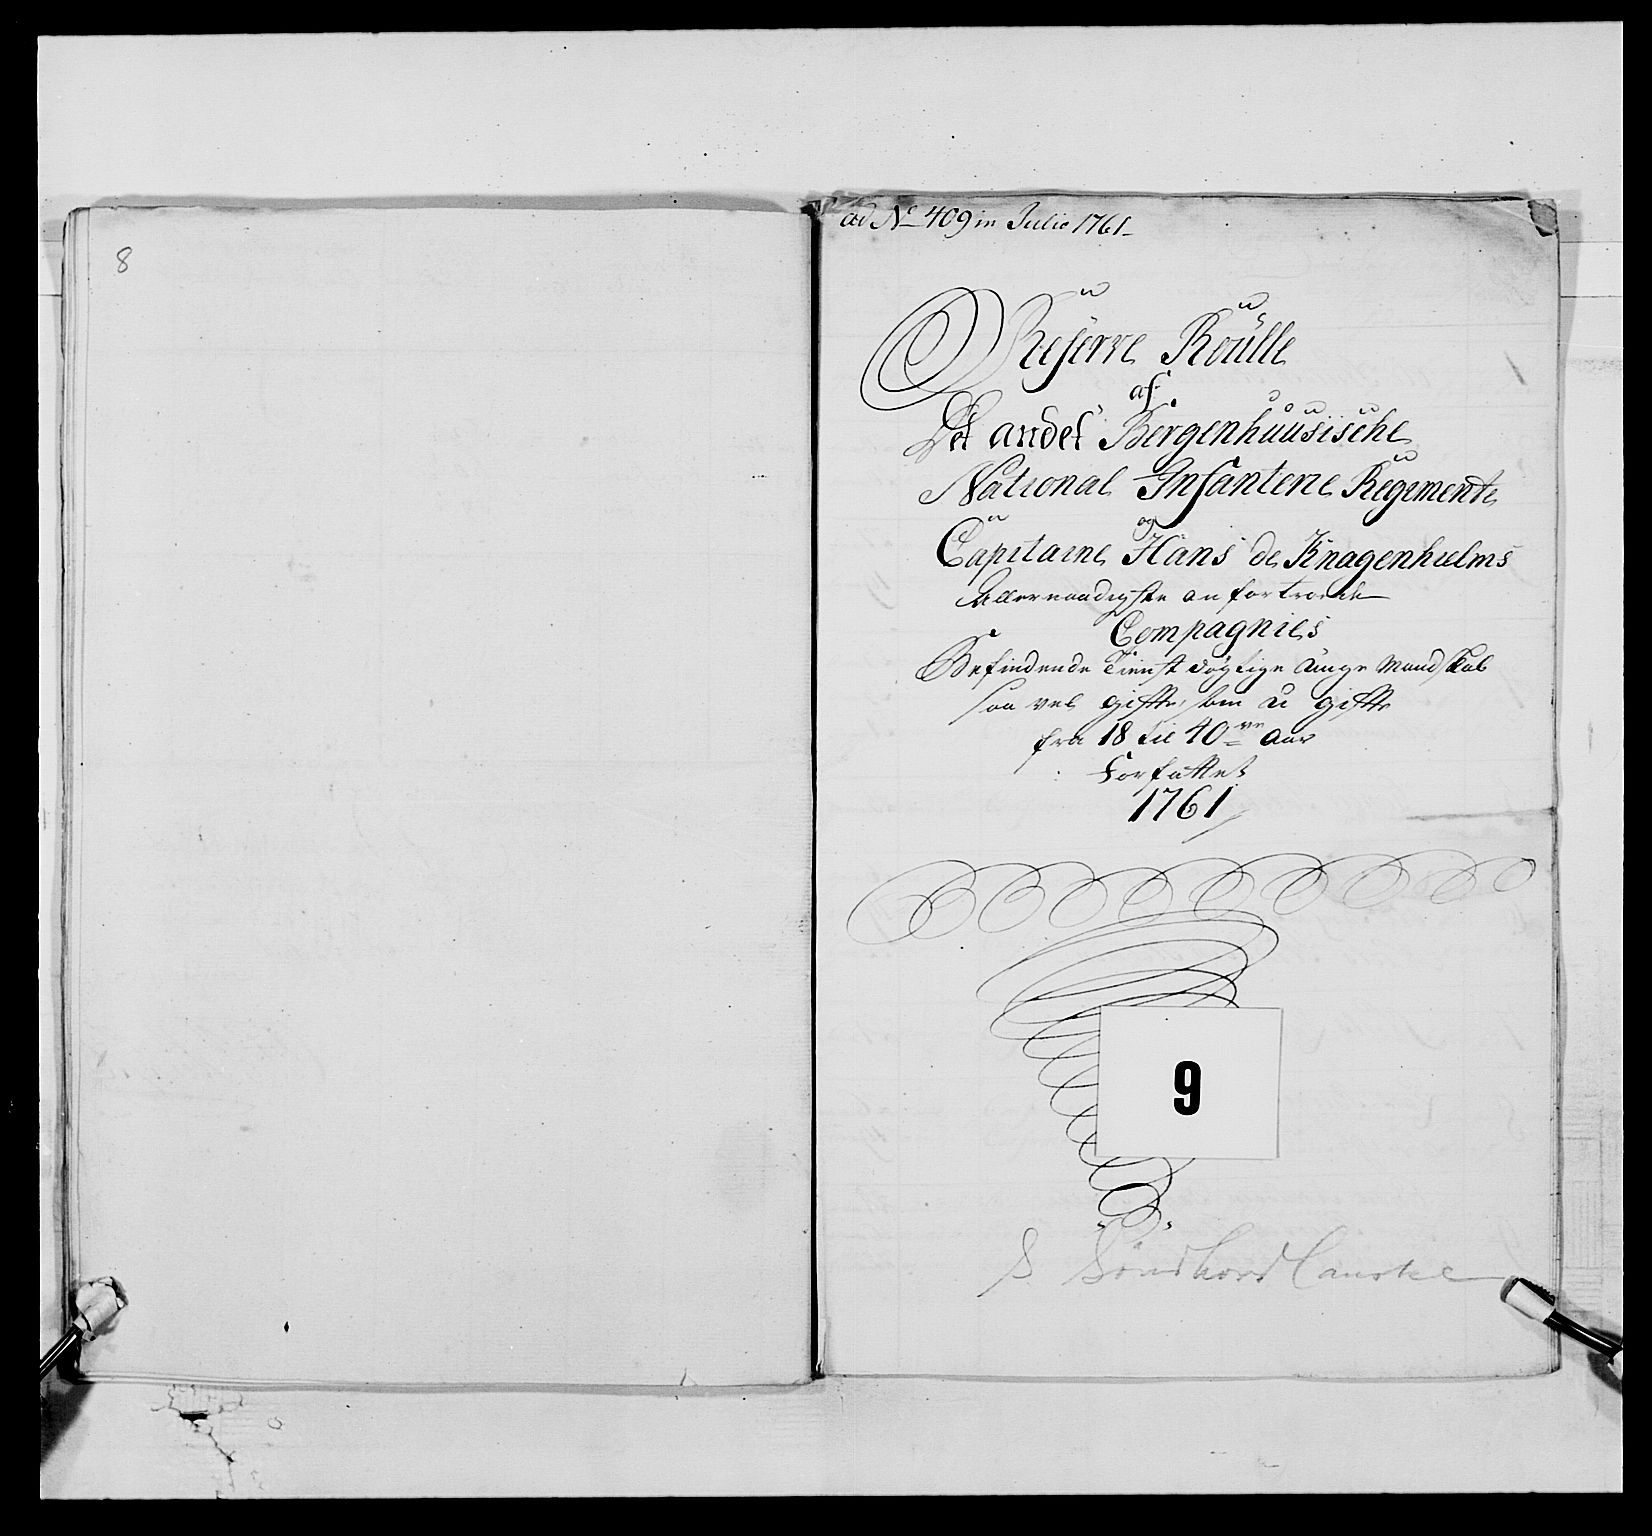 8
ad No 409 in Julio 1761
Reserve Roulle
af
Det andet Bergenhuusische
National Infanterie Regemente
og
Capitaine Hans de Knagenhielms
Allernaadigste anfortroede
Compagnies
Befindende Tienst dögtige unge Mandskab
saa vel gifte, som u gifte
fra 18 til 40ve Aar
Forfattet
1761
9
S. Söndhord Lanske